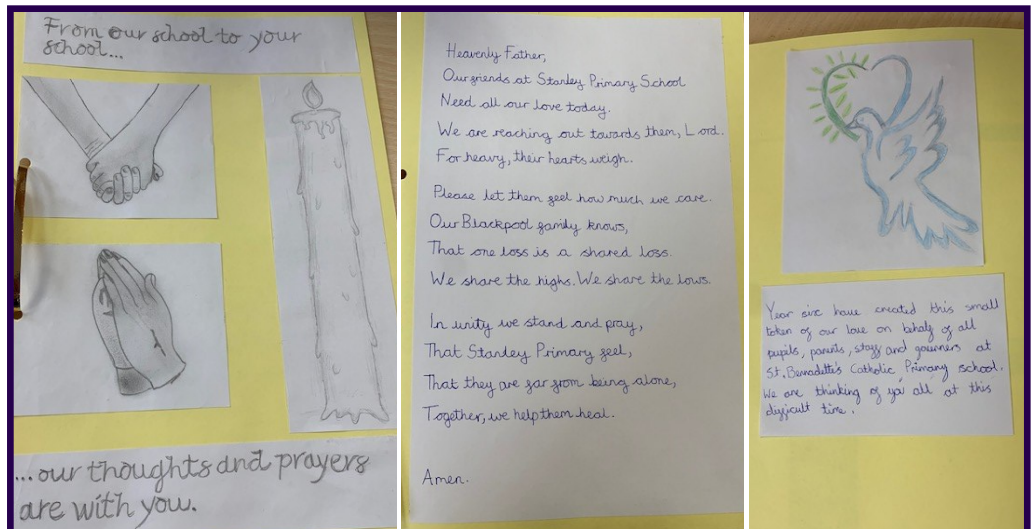 From our school to your
school...
...our thoughts and prayers
are with you.
Heavenly Father,
Our friends at Stanley Primary School
Need all our love today.
We are reaching out towards them, Lord.
For heavy, their hearts weigh.
Please let them feel how much we care.
Our Blackpool family knows,
That one loss is a shared loss.
We share the highs. We share the lows.
In unity we stand and pray,
That Stanley Primary feel,
That they are far from being alone,
Together, we help them heal.
Amen.
Year six have created this small
token of our love on behalf of all
pupils, parents, staff and governers at
St. Bernadette's Catholic Primary school.
We are thinking of you all at this
difficult time.